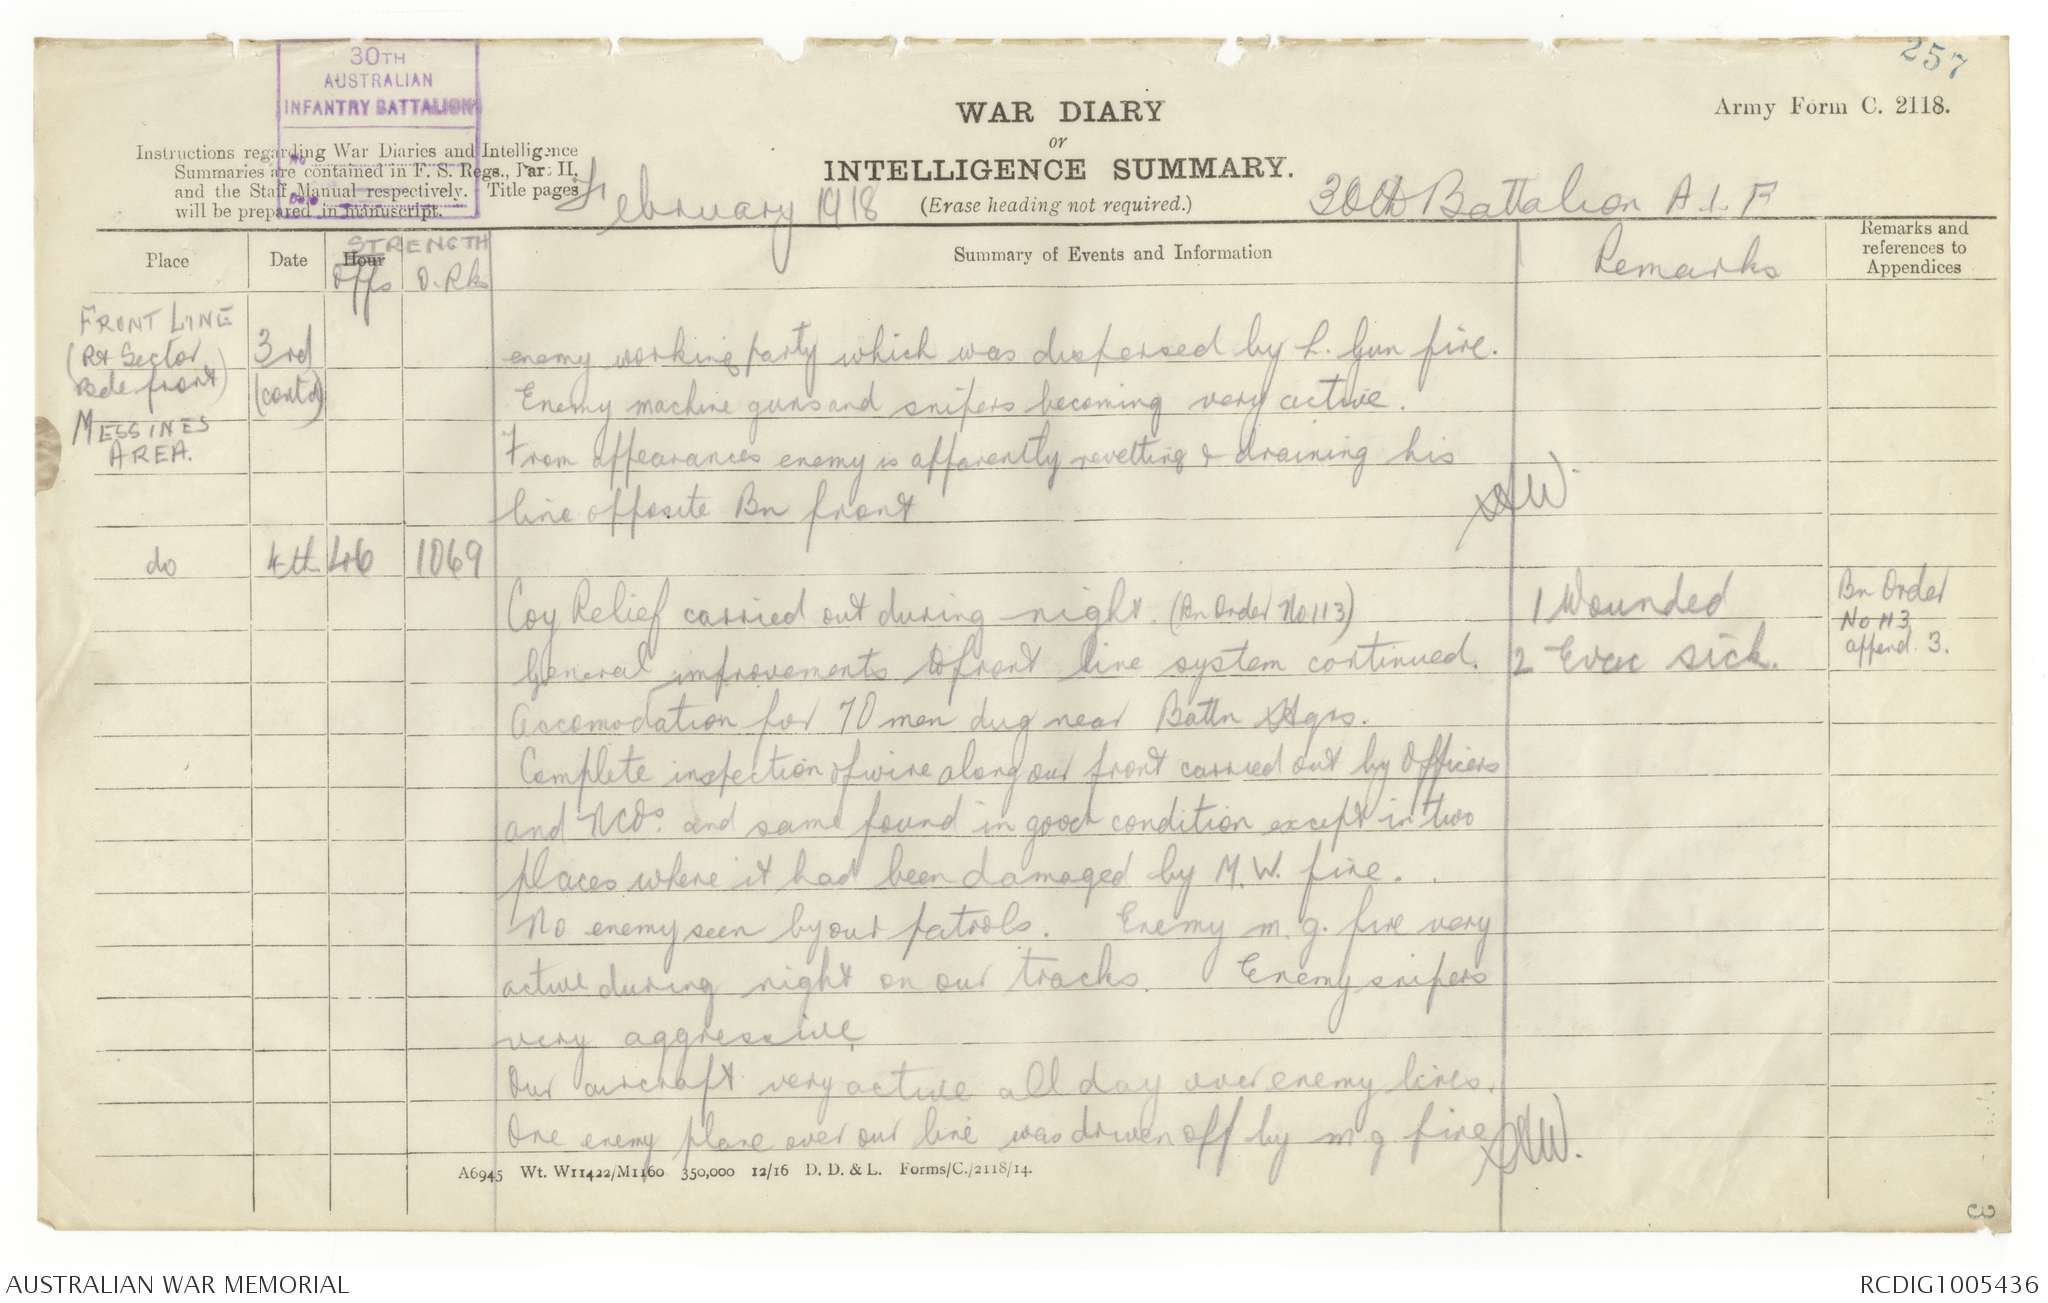 257
30TH
AUSTRALIAN
INFANTRY BATTALION
No
Date
WAR DIARY
or
INTELLIGENCE SUMMARY.
(Erase heading not required.)
Army Form C. 2118.
Instructions regarding War Diaries and Intelligence
Summaries are contained in F. S. Regs., Part II.
and the Staff Manual respectively. Title pages
will be prepared in manuscript.
February 1918
30th Battalion A.I.F
Place Date Hour STRENGTH Summary of Events and Information Remarks Remarks and
references to
Appendices
Offs O.Rks
FRONT LINE
(Rt Sector
Bde front)
MESSINES
AREA.
3rd
(cont'd)
enemy working party which was dispersed by L. Gun fire.
Enemy machine guns and snipers becoming very active.
From appearances enemy is apparently revetting & draining his
line opposite Bn front
do 4th 46 1069
Coy Relief carried out during night. (Bn Order No 113) 1 Wounded
General improvements to front line system continued. 2 Evac sick.
Bn Order
No 113
append. 3.
Accomodation for 70 men dug near Battn Hqrs.
Complete inspection of wire along our front carried out by Officers
and NCOs. and same found in good condition except in two
places where it had been damaged by M.W. fire.
No enemy seen by our patrols. Enemy m.g. fire very
active during night on our tracks. Enemy snipers
very aggressive.
Our aircraft very active all day over enemy lines.
One enemy plane over our line was driven off by m g fire
A6945 Wt. W11422/M1160 350,000 12/16 D. D. & L. Forms/C./2118/14.
3
AUSTRALIAN WAR MEMORIAL
RCDIG1005436